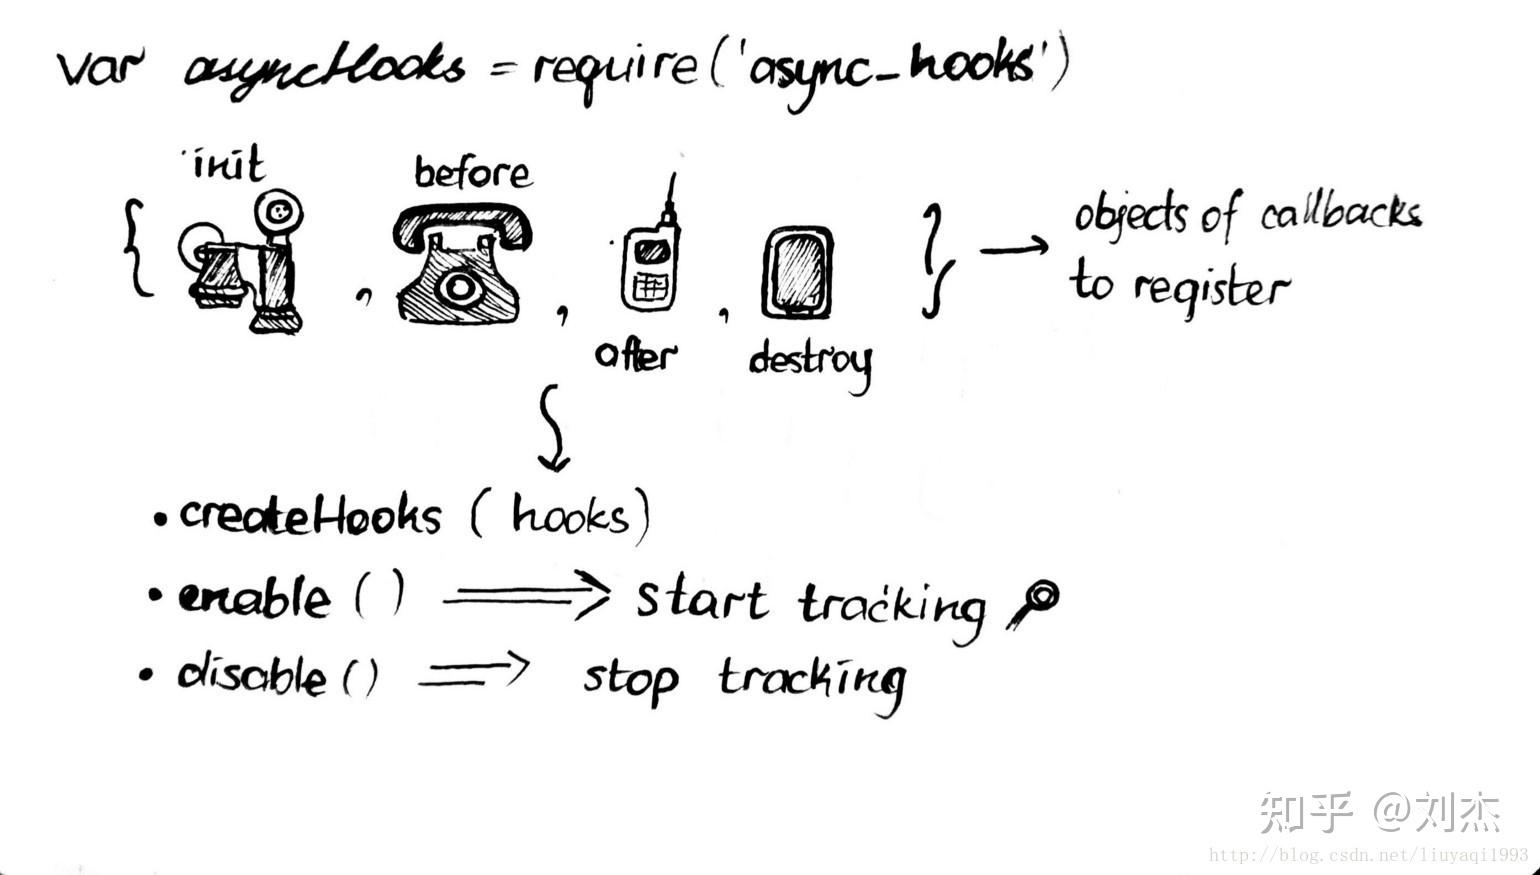 var asyncHooks = require('async_hooks')
init
before
{ , , , }
after
destroy
objects of callbacks
to register
• createHooks ( hooks)
• enable ( ) ⟹ start tracking
• disable ( ) ⟹ stop tracking
知乎 @刘杰
http://blog.csdn.net/liuyaqi1993